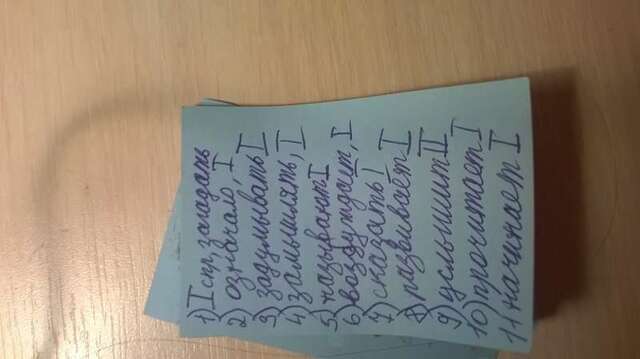 1) I спр, загадать
2) означало, I
3) задумывать I
4) замышлять, I
5) называют I
6) возбуждает, I
7) сказать I
8) развивает I
9) услышит II
10) прочитает I
11 начинает I